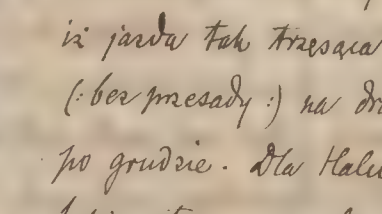 iż jazda tak trzęsąca
(: bez przesady :) na
po grudzie. Dla